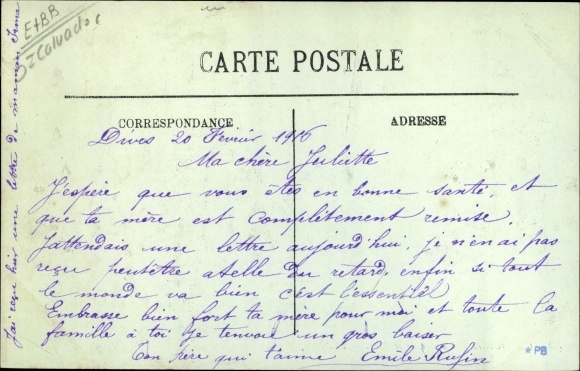 E+BB
Calvados
CARTE POSTALE
CORRESPONDANCE
ADRESSE
Dives 20 Fevrier 1916
Ma chère Juliette
J'espère que vous êtes en bonne santé, et
que ta mère est complètement remise.
J'attendais une lettre aujourd'hui, je n'en ai pas
reçu peutêtre atelle du retard, enfin si tout
le monde va bien c'est l'essentiel
Embrasse bien fort ta mère pour moi et toute la
famille à toi je tenvoie un gros baiser
Ton père qui t'aime Emile Rufin
J'ai reçu hier une lettre de maman Irma
*PB